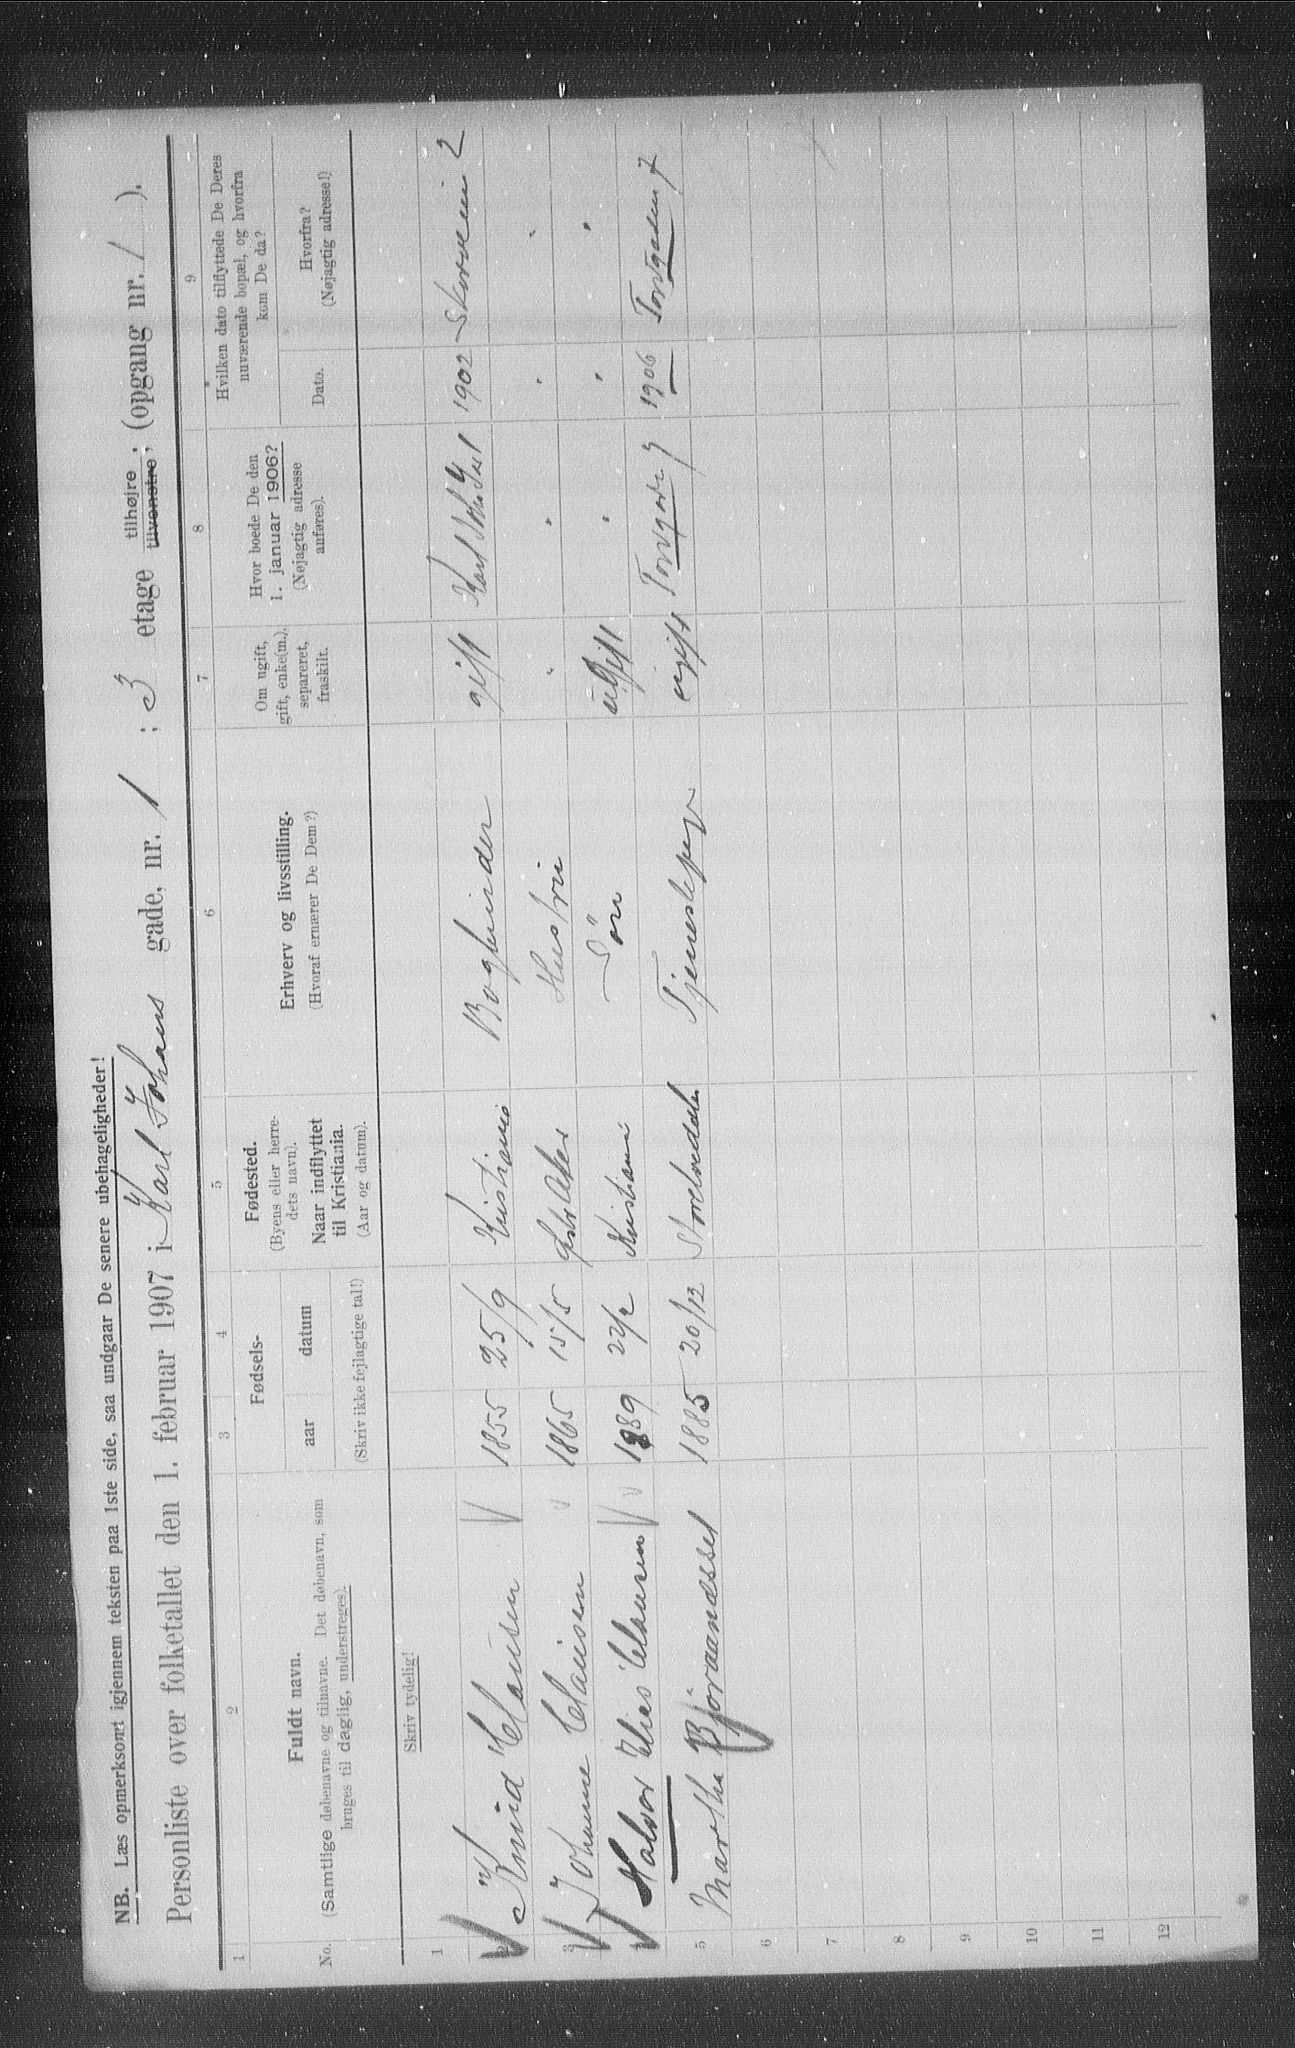 NB. Læs opmerksomt igjennem teksten paa 1ste side, saa undgaar De senere ubehageligheder!
Personliste over folketallet den 1. februar 1907 i Karl Johans gade, nr. 1 ; 3 etage tilhøjre, tilvenstre, (opgang nr. 1 ).
1 2 3 4 5 6 7 8 9
No.
Fuldt navn.
(Samtlige døbenavne og tilnavne. Det døbenavn, som
bruges til daglig, understreges).
Fødsels-
aar datum
(Skriv ikke fejlagtige tal!)
Fødested.
(Byens eller herre-
dets navn).
Naar indflyttet
til Kristiania.
(Aar og datum).
Erhverv og livsstilling.
(Hvoraf ernærer De Dem?)
Om ugift,
gift, enke(m.),
separeret,
fraskilt.
Hvor boede De den
1. januar 1906?
(Nøjagtig adresse
anføres).
Hvilken dato tilflyttede De Deres
nuværende bopæl, og hvorfra
kom De da?
Dato.
Hvorfra?
(Nøjagtig adresse!)
Skriv tydelig!
1
2 Knud Clausen 1855 25/9 Kristiania Bogbinder gift Karl Johs Gt 1 1902 2
3 Johanne Clausen 1865 15/5 Aker Hustru " " " "
Halvor Elias Clausen 1889 22/2 Kristiania Sön ugift " " "
5 Martha Björaanesset 1885 20/12 Storelvedalen Tjenestepige ugift Torvgaden 7 1906 Torvgaden 7
6
7
8
9
10
11
12